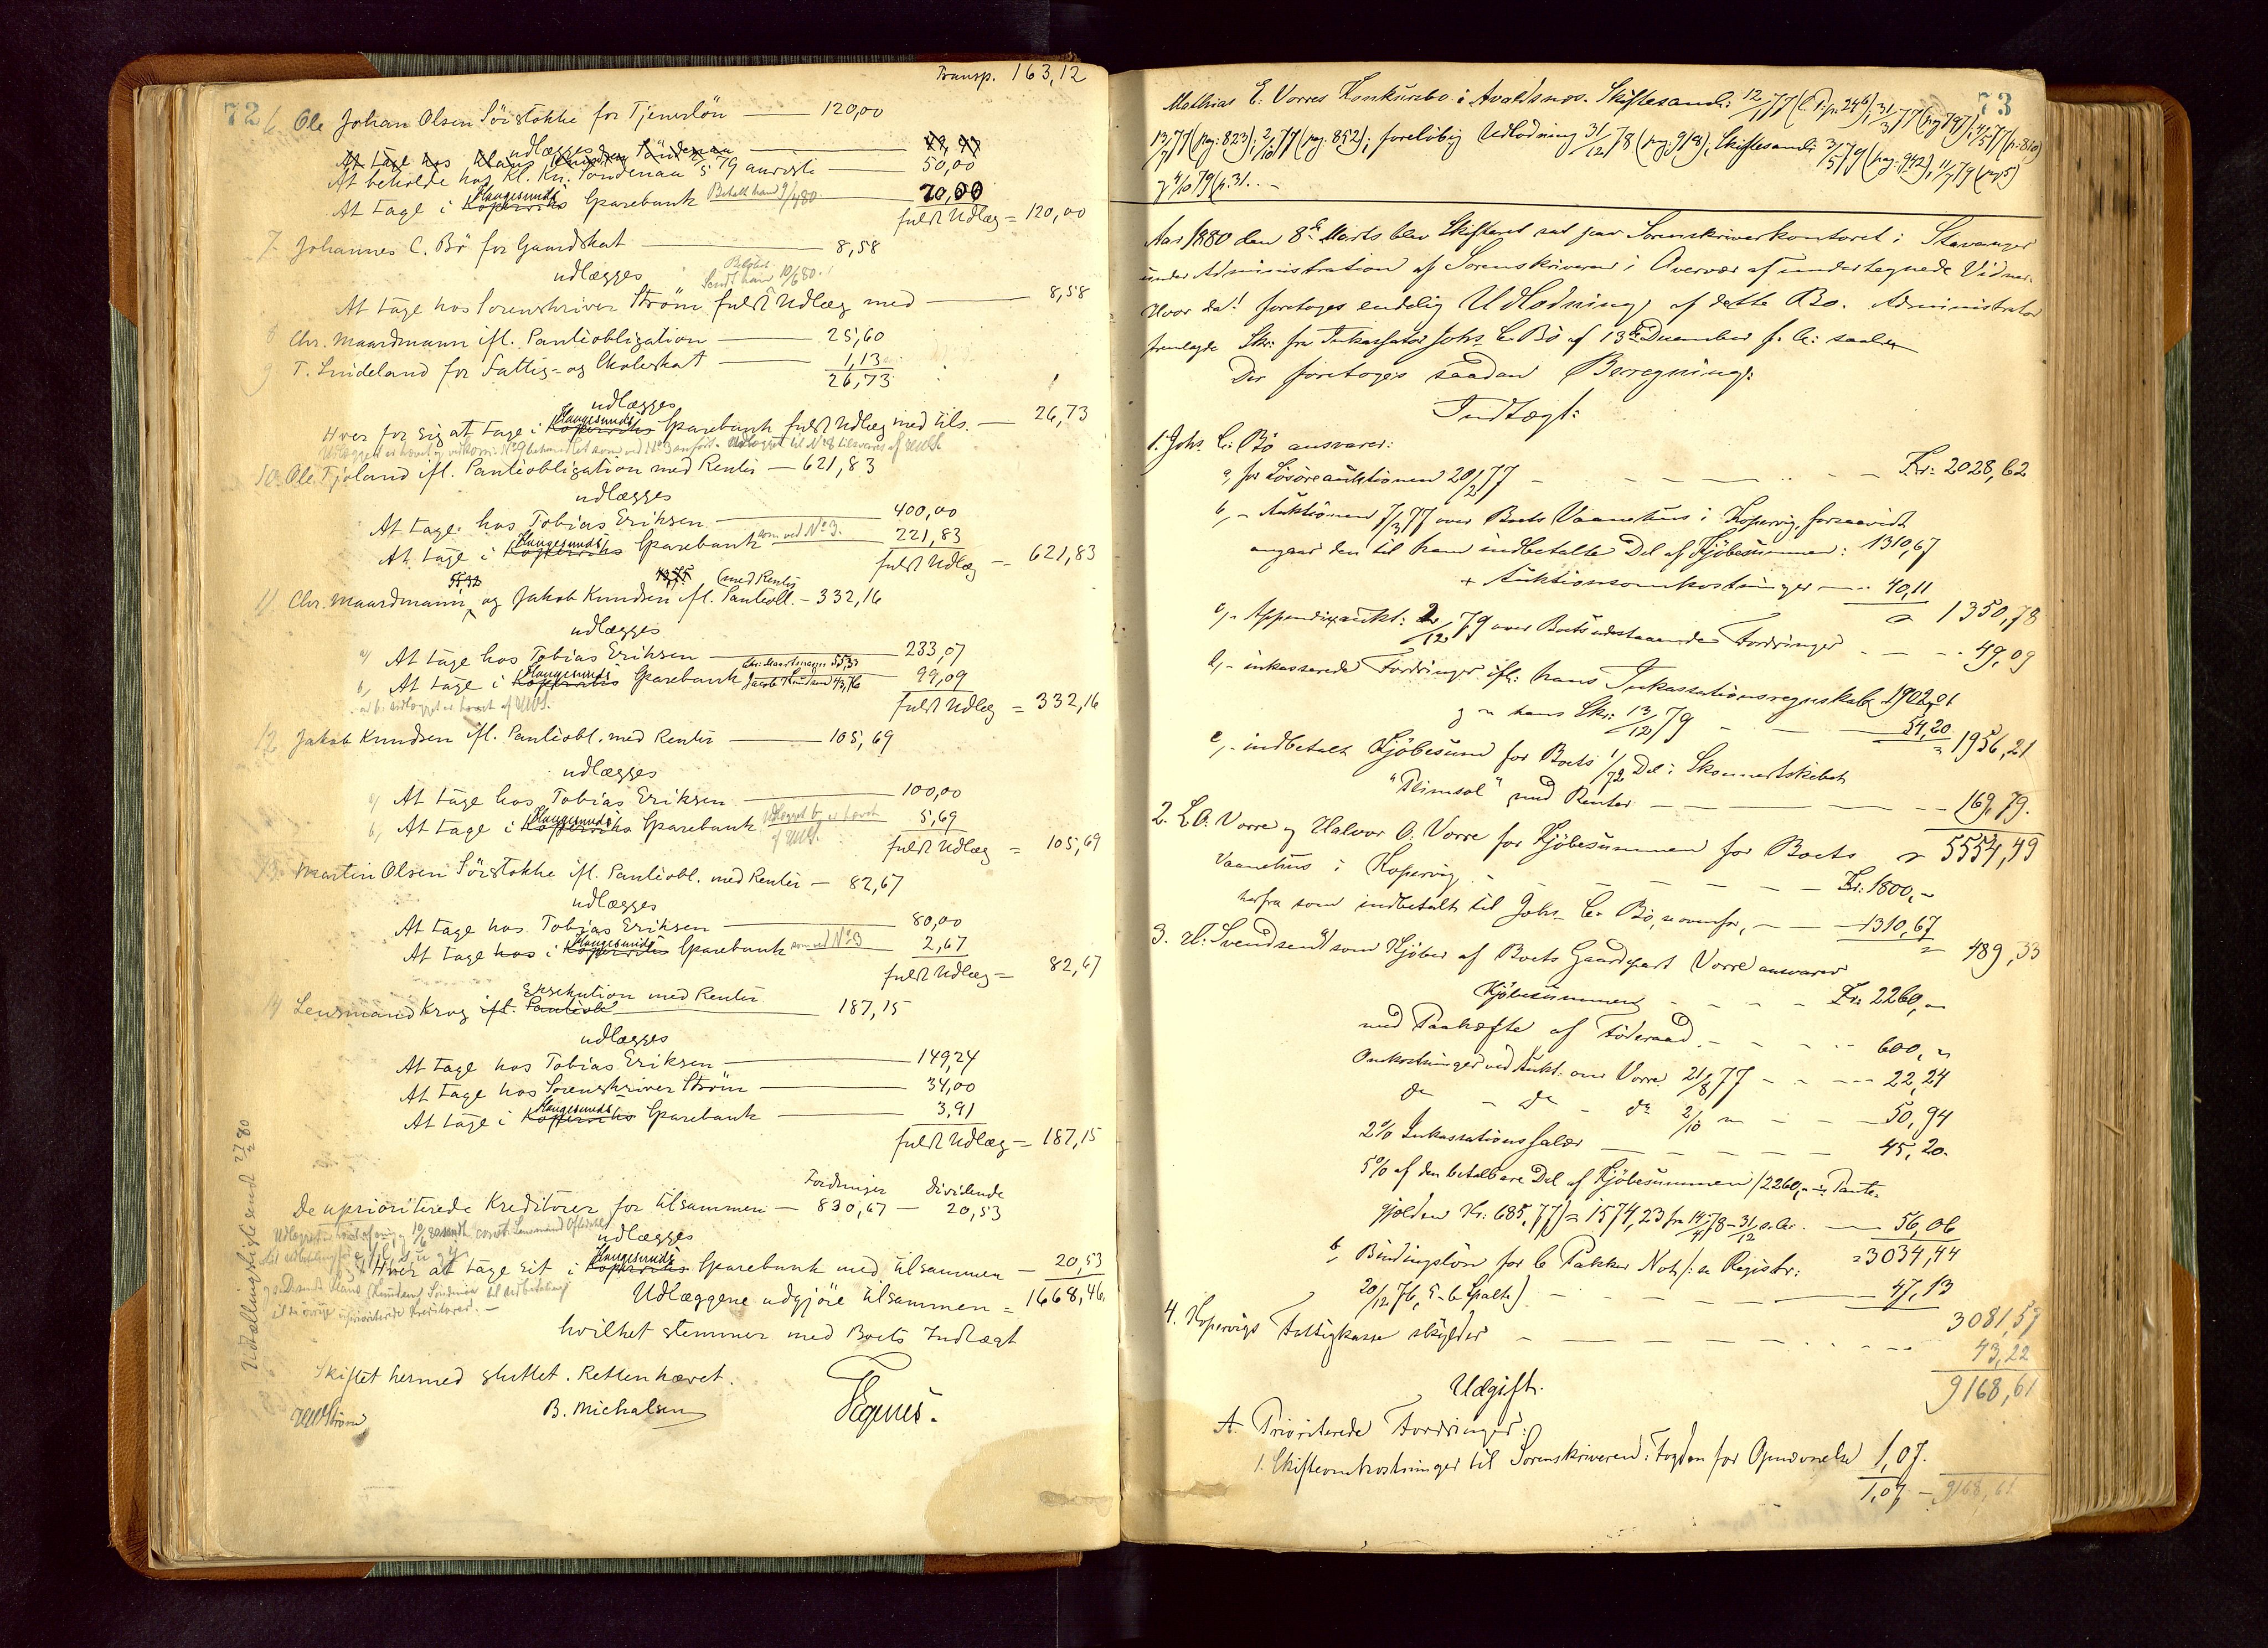 72
Transp. 163,12
6. Ole Johan Olsen Sörstokke for Tjenerlön — 120,00
udlægges
At tage hos Klaus Knudsen Söndenaa —
At beholde hos Kl. Kn. Söndenaa 79 — 50,00
At tage i Koperviks Haugesunds Sparebank — 70,00
Betalt ham 9/4 80
fuldt Udlæg = 120,00
7. Johannes C. Bö for Gaardskat — 8,58
udlægges
Beløbet sendt ham 10/6 80.
At tage hos Sorenskriver Ström fuldt Udlæg med — 8,58
8 Chr. Maardmann ifl. Pantiobligation — 25,60
9 T. Lindeland for Fattig- og Skoleskat — 1,13
26,73
udlægges
Hver for sig at tage i Koperviks Haugesunds Sparebank fuldt Udlæg med tils. — 26,73
10. Ole Fjöland ifl. Pantiobligation med Renter — 621,83
udlægges
At tage hos Tobias Eriksen — 400,00
At tage i Koperviks Haugesunds Sparebank som ved No 3. 221,83
fuldt Udlæg — 621,83
11 Chr. Maardmann og Jakob Knudsen ifl. Pantiobl. (med Renter — 332,16
udlægges
a) At tage hos Tobias Eriksen — 233,07
b, At tage i Koperviks Haugesunds Sparebank Chr. Maardmann 55,33 Jacob Knudsen 43,76 99,09
ad b. Udlægget er hævet af UWS.
fuldt Udlæg = 332,16
12 Jakob Knudsen ifl. Pantiobl. med Renter — 105,69
udlægges
a) At tage hos Tobias Eriksen — 100,00
b, At tage i Koperviks Haugesunds Sparebank Udlægget b, er hævet af UWS. 5,69
fuldt Udlæg = 105,69
13. Martin Olsen Sörstokke ifl. Pantiobl. med Renter — 82,67
udlægges
At tage hos Tobias Eriksen — 80,00
At tage hos i Koperviks Haugesunds Sparebank som ved No 3 2,67
fuldt Udlæg = 82,67
14 Lensmand Krog ifl. Pantiobl Exekution med Renter 187,15
udlægges
At tage hos Tobias Eriksen — 149,24
At tage hos Sorenskriver Ström — 34,00
At tage i Koperviks Haugesunds Sparebank — 3,91
fuldt Udlæg = 187,15
Fordringer Dividende
De uprioriterede Kreditorer for tilsammen — 830,67 — 20,53
udlægges
Hver at tage sit i Koperviks Haugesunds Sparebank med tilsammen — 20,53
Udlæggene udgjöre tilsammen = 1668,46
hvilket stemmer med Boets Indtægt
Skiftet hermed sluttet. Retten hævet.
UWStröm B. Michalsen Tegnæs.
Uddelingsliste sendt 27/2 80
73
Mathias E. Vorres Konkursbo i Avaldsnes. Skiftesaml: 12/1 77 (E. P: p: 246); 31/3 77 (pag 797); 4/5 77 (p: 810)
13/7 77 (pag: 823); 2/10 77 (pag. 852); foreløbig Udlodning 31/12 78 (pag. 918); Skiftesaml: 3/5 79 (pag: 942), 11/7 79 (pag 5)
og 4/10 79 (p. 31.. –
Aar 1880 den 8de Marts blev Skifteret sat paa Sorenskriverkontoret i Stavanger
under Administration af Sorenskriveren i Overvær af undertegnede Vidner.
Hvor da! foretoges endelig Udlodning af dette Bo. Administrator
fremlagde Skr: fra Inkassator Johs. C. Bö af 13de December f. A: saal:
Der foretoges saadan Beregning:
Indtægt:
1. Johs. C. Bö ansvarer:
a, for Lösöreauktionen 20/2 77 — Kr: 2028,62
b, – Auktionen 7/3 77 over Boets Vaanehus i Kopervig, forsaavidt
angaar den til ham indbetalte Del af Kjöbesummen: 1310,67
+ Auktionsomkostninger — 40,11
= 1350,78
c, – Appendixaukt: 2/12 79 over Boets udestaaende Fordringer — 49,09
d, – inkasserede Fordringer ifl: hans Inkassationsregnskab 1902,01
og – hans Skr: 13/12 79 — 54,20
= 1956,21
e, – indbetalt Kjöbesum for Boets 1/72 Del i Skonnertskibet
"Plimsol" med Renter — 169,79.
= 5554,49
2. L. O. Vorre og Halvor O. Vorre for Kjöbesummen for Boets
Vaanehus i Kopervig — Kr: 1800,–
herfra som indbetalt til Johs. C. Bö, se ovenfor, — 1310,67
= 489,33
3. H: Svendsen som Kjöber af Boets Gaardpart Vorre ansvarer
Kjöbesummen — Kr: 2260,–
med Paahefte af Föderaad — 600,–
Omkostninger ved Aukt. over Vorre 21/8 77 — 22,24
do – do – do 2/10 — 50,94
2% Inkassationssalær — 45,20.
5% af den betalbare Del af Kjöbesummen (2260,– ÷ Pante-
gjelden Kr: 685,77) = 1574,23 fra 14/4 78 – 31/12 s. A. — 56,06
= 3034,44
b, Bindingslön for 6 Pakker Not (: se Registr:
20/12 76, 5-6 Spalte) — 47,13
3081,57
4. Kopervigs Fattigkasse skylder — 43,22
9168,61
Udgift.
A. Prioriterede Fordringer:
1. Skifteomkostninger til Sorenskriveren: Fogden for Opnævnelse 1,07.
1,07 – 9168,61